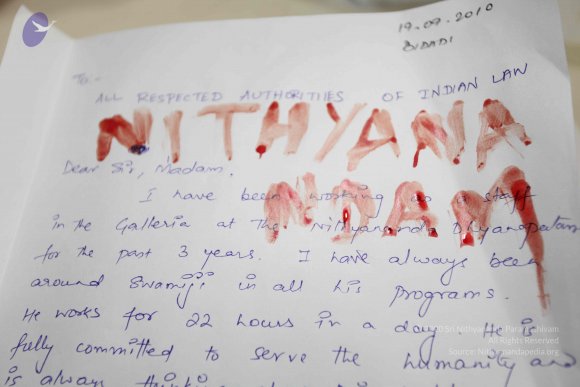 19.09.2010
BIDADI
To:-
ALL RESPECTED AUTHORITIES OF INDIAN LAW
NITHYANA
NDAM
Dear Sir, Madam.
I have been working as a staff
in the Galleria at The Nithyananda Dhyanapeetam
for the past 3 years. I have always been
around Swamiji in all his programs.
He works for 22 hours in a day. He is
fully committed to serve the humanity and
is always
Sri Nithyananda Paramashivam
All Rights Reserved
Source: Nithyanandapedia.org